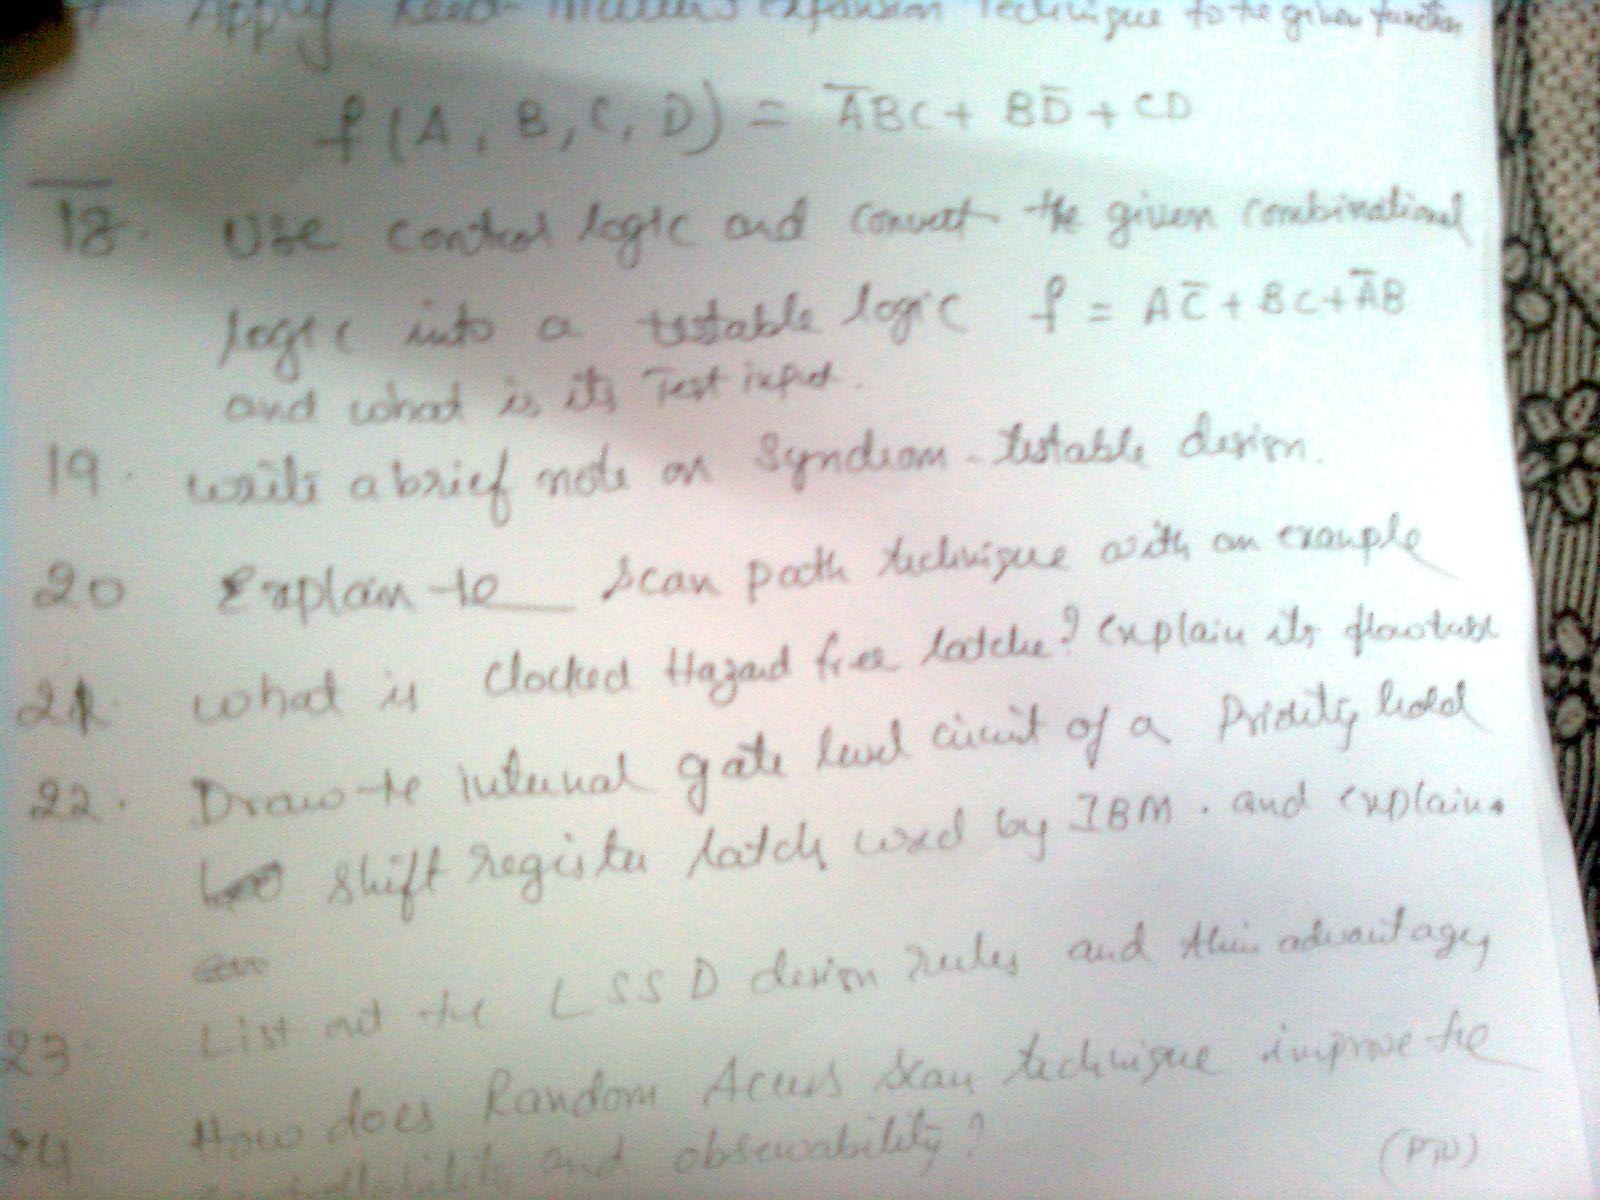 Apply Reed-Muller's expansion Technique to the given function
f(A, B, C, D) = A̅BC + BD̅ + CD
18. Use control logic and convert the given combinational
logic into a testable logic f = AC̅ + BC + A̅B
and what is its Test input.
19. write a brief note on Syndrom-testable design.
20 Explain te scan path technique with an example
21. what is Clocked Hazard free latche? explain its flowtable
22. Draw te internal gate level circuit of a Priority hold
shift register latch used by IBM. and explain.
23. List out the LSSD design rules and their advantages
24 How does Random Access Scan technique improve te
controllability and observability?
(PTO)